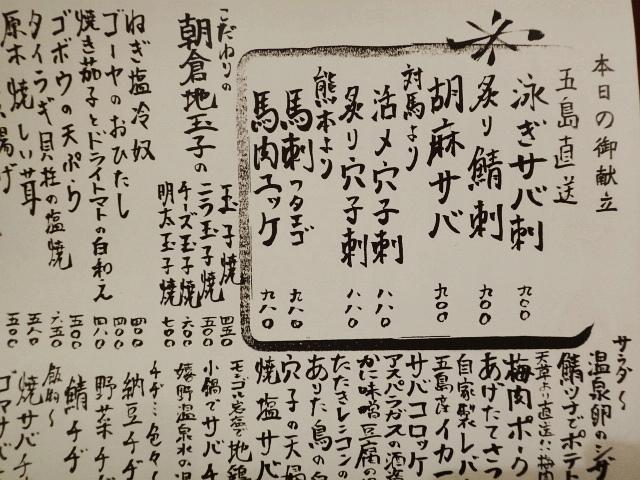 本日の御献立
五島直送
泳ぎサバ刺 九〇〇
炙り鯖刺 九〇〇
胡麻サバ 九〇〇
対馬より
活〆穴子刺 八八〇
炙り穴子刺 八八〇
熊本より
馬刺フタエゴ 九八〇
馬肉ユッケ 九八〇
こだわりの
朝倉地玉子の
玉子焼 四五〇
ニラ玉子焼 五五〇
チーズ玉子焼 六〇〇
明太玉子焼 七〇〇
ねぎ塩冷奴 四〇〇
ゴーヤのおひたし 四〇〇
焼き茄子とドライトマトの白和え 四八〇
ゴボウの天ぷら 五〇〇
タイラギ貝柱の塩焼 六五〇
原木焼しい茸 五八〇
揚げ 五〇〇
サラダ〜
温泉卵のシーザ
鯖ツナでポテト
梅肉ポーク
あげたてさつ
自家製レバ
五島産イカ
サバコロッケ
アスパラガスの酒
かに味噌豆腐の
たたきレンコンの
ありた鳥の
穴子の天婦
焼塩サバ
モンゴル岩塩地鶏
小鍋でサバチ
嬉野温泉水の湯
チヂミ色々
納豆チヂ
野菜チヂ
鯖チヂ
飯物〜
焼サバチ
ゴマサバ